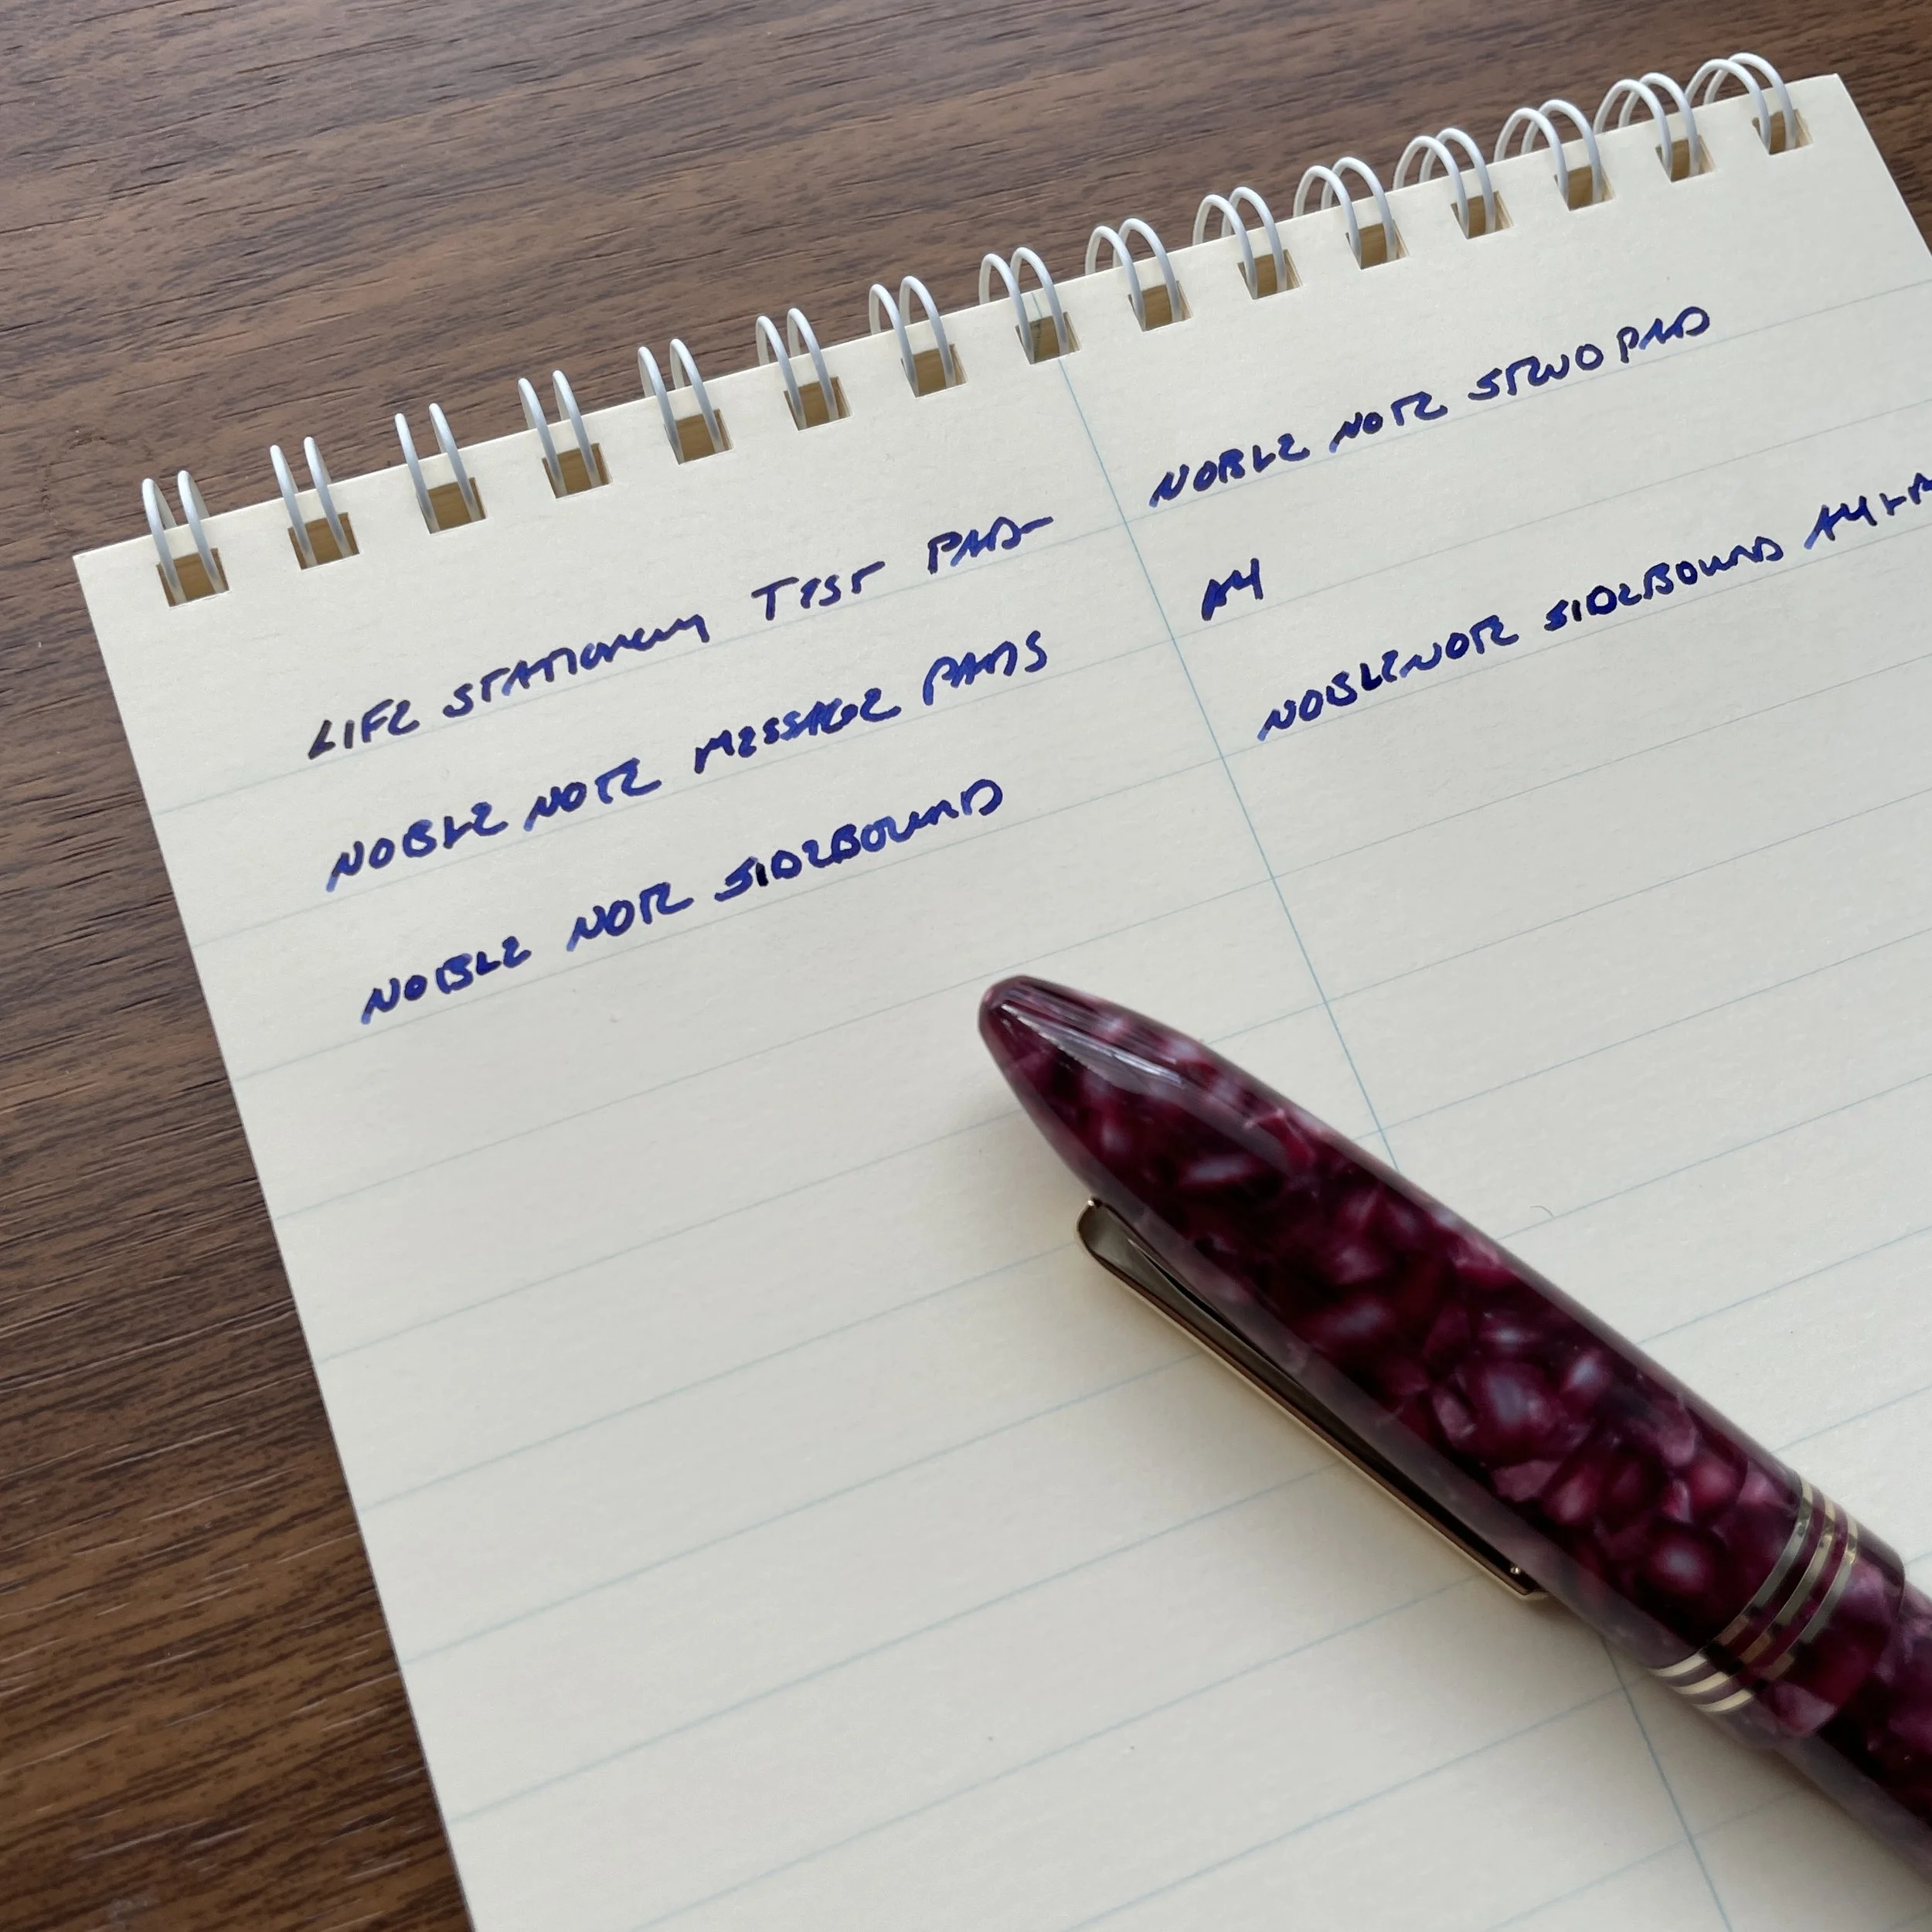 LIFE STATIONERY TEST PAD-
NOBLE NOTE MESSAGE PADS
NOBLE NOTE SIDEBOUND
NOBLE NOTE STENO PAD
A4
NOBLE NOTE SIDEBOUND A4